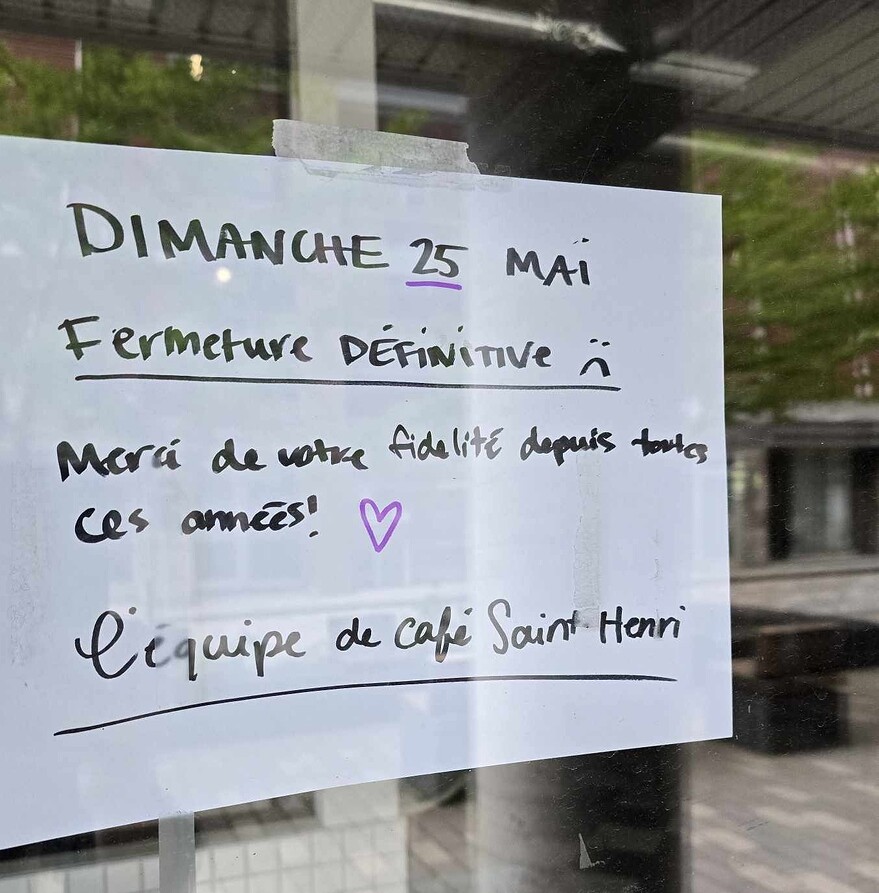 DIMANCHE 25 MAI
Fermeture DÉFINITIVE :(
Merci de votre fidelité depuis toutes
ces années! ♡
L'équipe de café Saint Henri